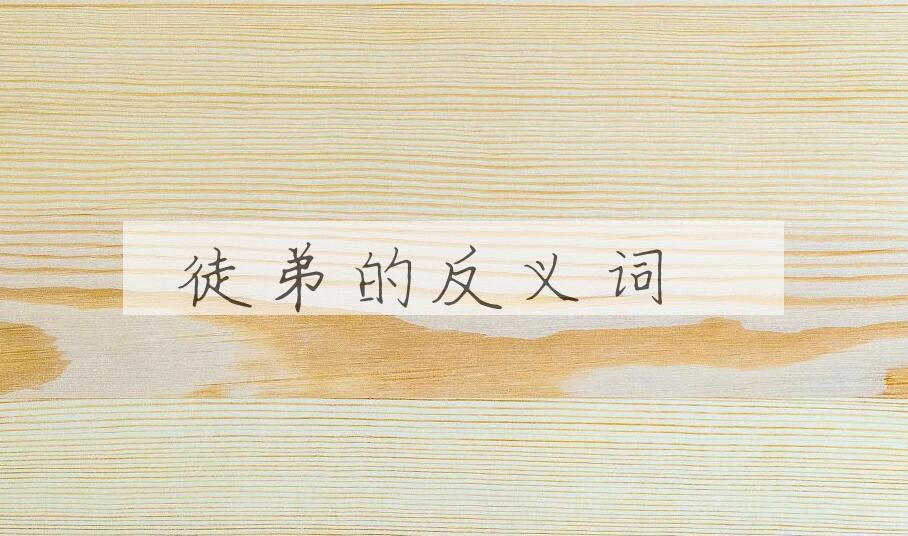 徒弟的反义词